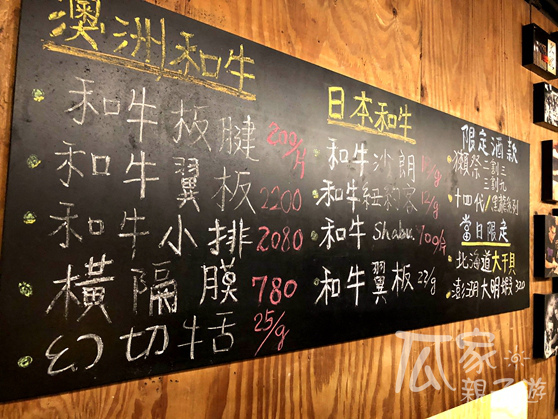 澳洲和牛
和牛板腱 200/片
和牛翼板 2200
和牛小排 2080
橫隔膜 780
幻切牛舌 25/g
日本和牛
和牛沙朗
和牛紐約客 12/g
和牛 Shabu. 700/份
和牛翼板 22/g
限定酒款
獺祭 二割三
三割九
十四代/黑龍系列
當日限定
北海道大干貝
澎湖大明蝦 320
瓜家
親子游